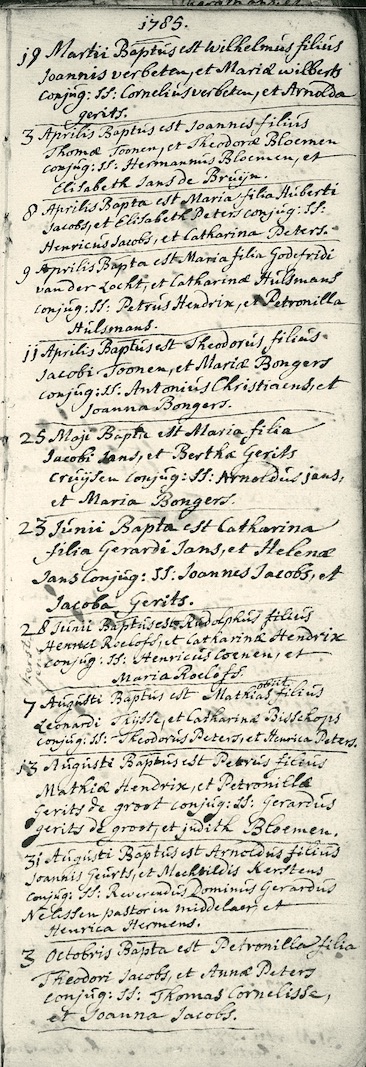 1785.
19 Martii Baptus est Wilhelmus filius
Joannis verbeten, et Mariæ wilberts
conjug: SS: Cornelius verbeten, et Arnolda
gerits.
3 Aprilis Baptus est Joannes filius
Thomæ Toonen, et Theodoræ Bloemen
conjug: SS: Hermannus Bloemen, et
Elisabeth Jans de Bruijn.
8 Aprilis Bapta est Maria filia Huberti
Jacobs, et Elisabeth Peters conjug: SS:
Henricus Jacobs, et Catharina Peters.
9 Aprilis Bapta est Maria filia Godefridi
van der Locht, et Catharinæ Hulsmans
conjug: SS: Petrus Hendrix, et Petronilla
Hulsmans.
11 Aprilis Baptus est Theodorus filius
Jacobi Toonen, et Mariæ Bongers
conjug: SS: Antonius Christiaens, et
Joanna Bongers.
25 Maji Bapta est Maria filia
Jacobi Jans, et Berthæ Gerits
Cruijsen conjug: SS: Arnoldus jans,
et Maria Bongers.
23 Junii Bapta est Catharina
filia Gerardi Jans, et Helenæ
Jans conjug: SS: Joannes Jacobs, et
Jacoba Gerits.
28 Junii Baptus est Rudolphus filius
Henrici Roelofs, et Catharinæ Hendrix
conjug: SS: Henricus Coenen, et
Maria Roelofs.
obiit
7 Augusti Baptus est Mathias filius
Leonardi Thijsse, et Catharinæ Bisschops
conjug: SS: Theodorus Peters, et Henrica Peters.
13 Augusti Baptus est Petrus filius
Mathiæ Hendrix, et Petronillæ
Gerits de groot conjug: SS: Gerardus
gerits de groot, et judith Bloemen.
31 Augusti Baptus est Arnoldus filius
Joannis Geurts, et Mechtildis Kerstens
conjug: SS: Reverendus Dominus Gerardus
Nelissen pastor in middelaer, et
Henrica Hermens.
3 Octobris Bapta est Petronilla filia
Theodori Jacobs, et Annæ Peters
conjug: SS: Thomas Cornelisse,
et Joanna Jacobs.